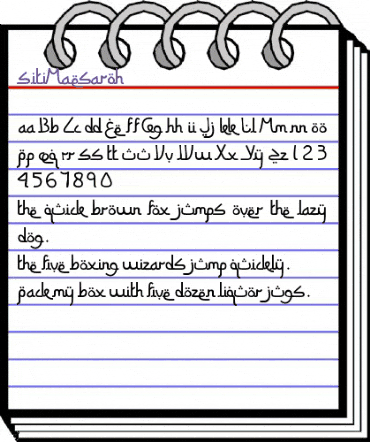 sitiMaesaroh
aa Bb Cc dd Ee ff Gg hh ii Jj kk Ll Mm nn oo
pp qq rr ss tt uu Vv Ww Xx Yy zz 1 2 3
4 5 6 7 8 9 0
the quick brown fox jumps over the lazy
dog.
the five boxing wizards jump quickly.
pack my box with five dozen liquor jugs.